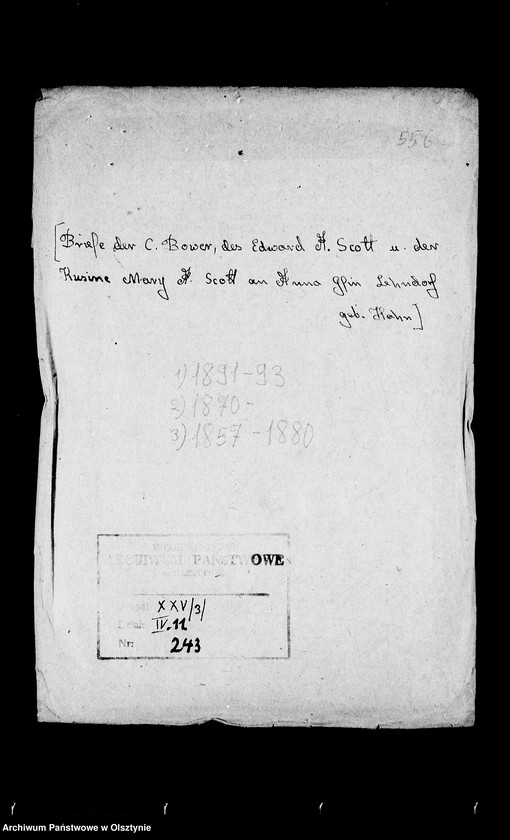 556
[Briefe der C. Bower, des Edward A. Scott u. der
Kusine Mary A. Scott an Anna Gfin Lehndorf
geb. Hahn]
1) 1891-93
2) 1870-
3) 1857-1880
ARCHIWUM PAŃSTWOWE
XXV/3/
IV.11
Nr: 243
Archiwum Państwowe w Olsztynie